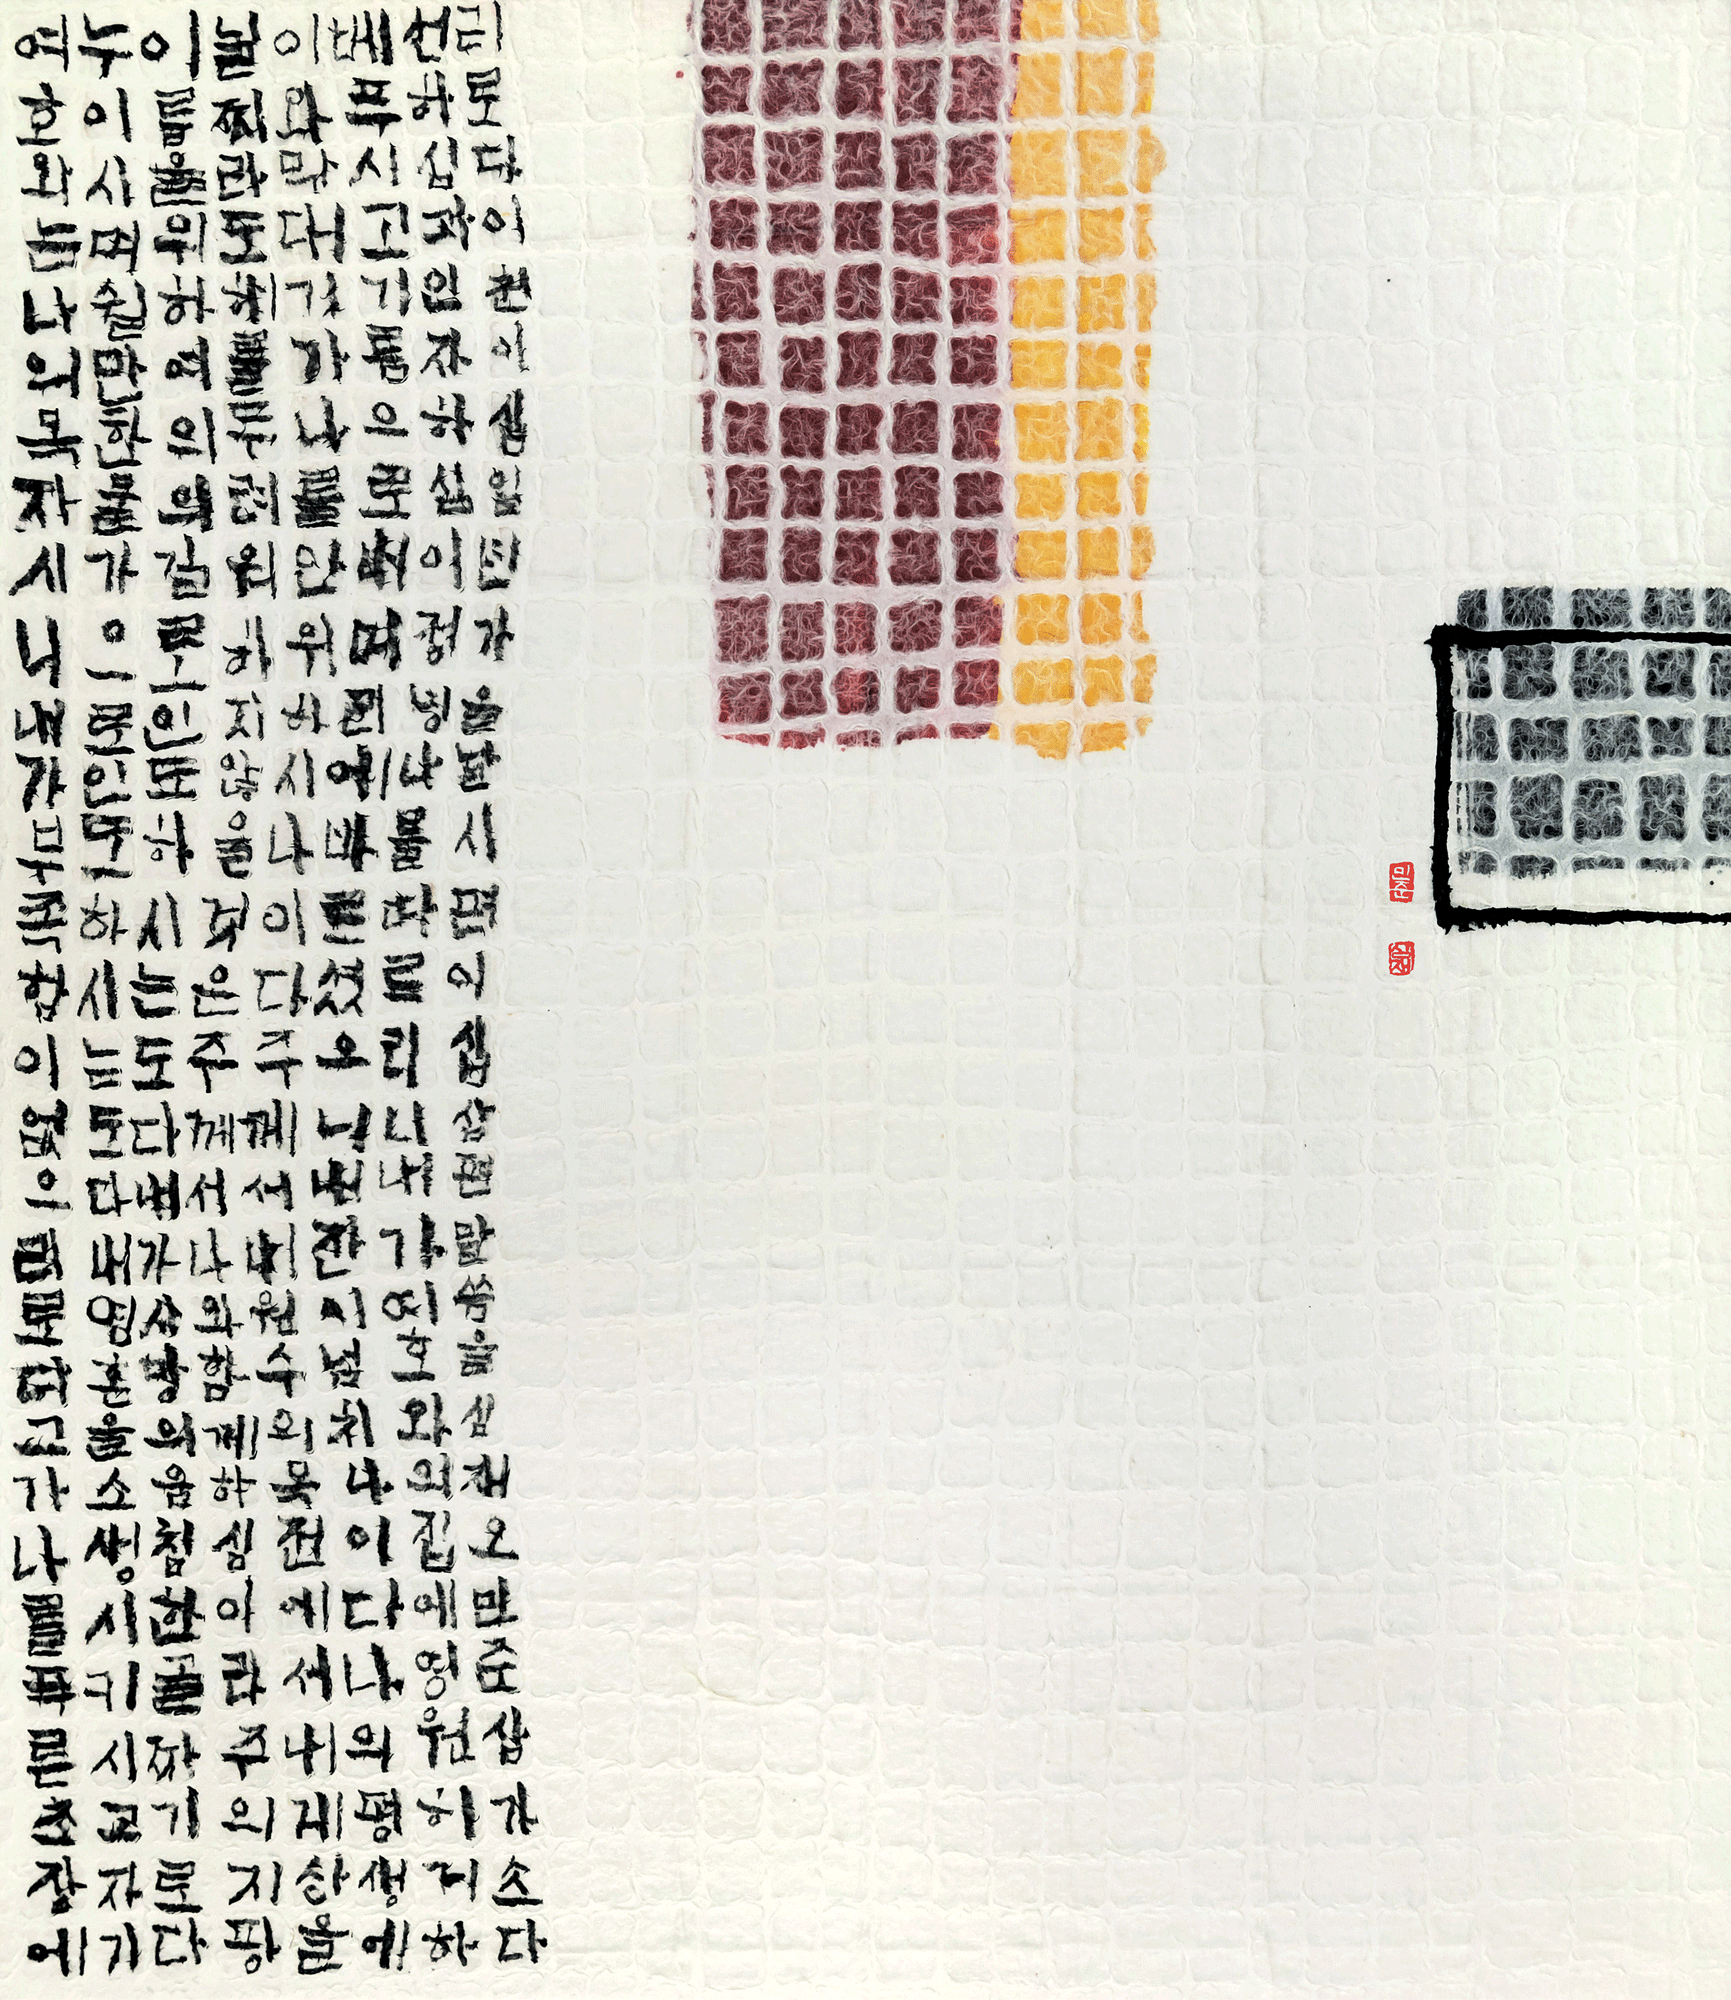 여호와는나의목자시니내가부족함이없으리로다그가나를푸른초장에
누이시며쉴만한물가으로인도하시는도다내영혼을소생시키시고자기
이름을위하여의의길로인도하시는도다내가사망의음침한골짜기로다
닐찌라도해를두려워하지않을것은주께서나와함께하심이라주의지팡
이와막대기가나를안위하시나이다주께서내원수의목전에서내게상을
베푸시고기름으로내머리에바르셨오니내잔이넘치나이다나의평생에
선하심과인자하심이정녕나를따르리니내가여호와의집에영원히거하
리로다이천이십일년가을날시편이십삼편말씀을심재오민준삼가쓰다
민준
심재